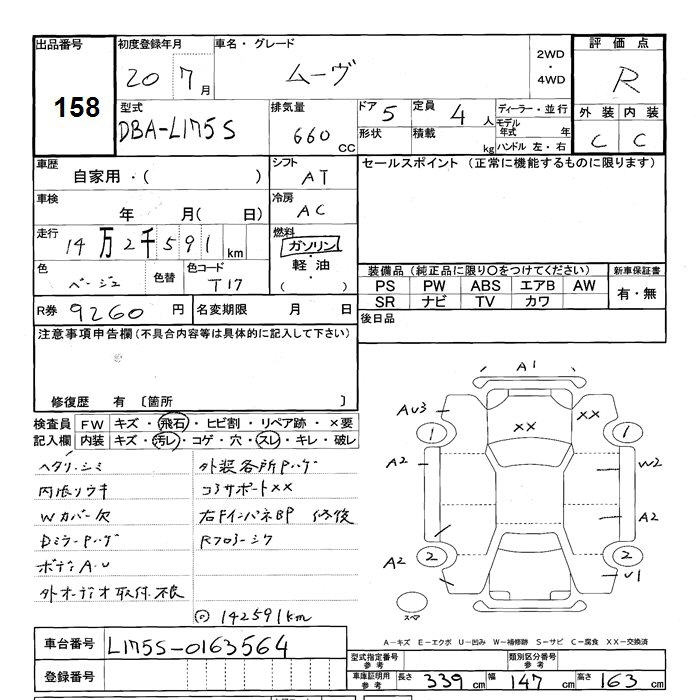 出品番号 初度登録年月 車名・グレード 2WD・4WD 評価点
158 20 7月 ムーヴ R
型式 排気量 ドア 5 定員 4人 ディーラー・並行 外装 内装
DBA-L175S 660cc 形状 積載 kg モデル年式 年 ハンドル 左・右 C C
車歴 シフト セールスポイント(正常に機能するものに限ります)
自家用・( ) AT
車検 冷房
年 月( 日) AC
走行 燃料
14万2千591km ガソリン・軽油・( )
色 色替 色コード 装備品(純正品に限り○をつけてください) 新車保証書
ベージュ T17 PS PW ABS エアB AW 有・無
SR ナビ TV カワ
R券 9260円 名変期限 月 日 後日品
注意事項申告欄(不具合内容等は具体的に記入して下さい)
修復歴 有 〔箇所 〕
検査員 FW キズ・飛石・ヒビ割・リペア跡・×要
記入欄 内装 キズ・汚レ・コゲ・穴・スレ・キレ・破レ
ヘタリ・シミ 外装各所Pハゲ
内張リウキ コアサポートXX
Wカバー欠 右FインパネBP 修復
DミラーPハゲ
ボディA・U
外オーディオ取付不良
◎142591km
A1
AU3 XX XX
1 1
A2 W2
A2
A2 2 2 U1
スペア
A-キズ E-エクボ U-凹み W-補修跡 S-サビ C-腐食 XX-交換済
車台番号 L175S-0163564
登録番号
型式指定番号 参考 類別区分番号 参考
車庫証明用 参考 長さ 339cm 幅 147cm 高さ 163cm